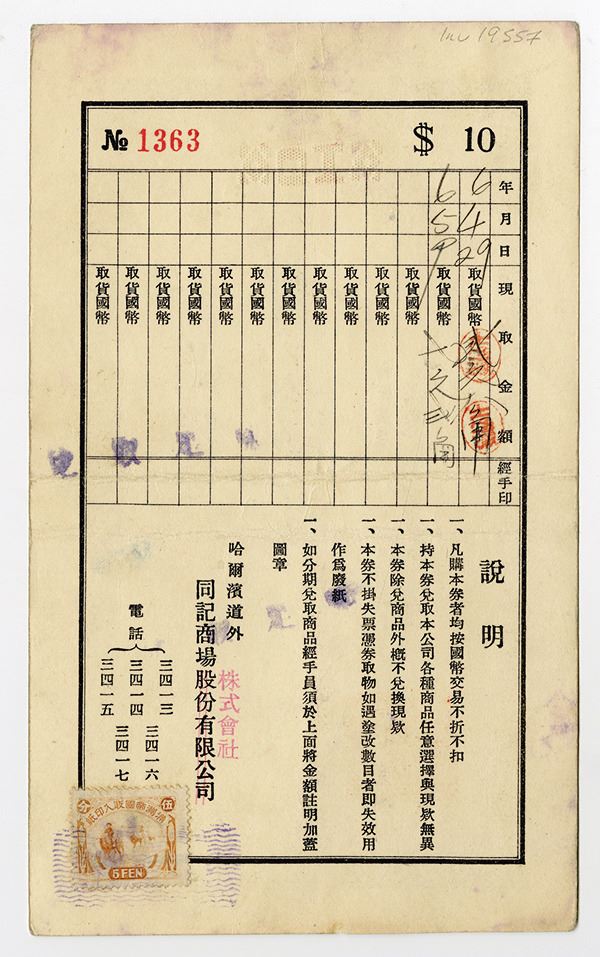 Inv 19557
№ 1363
$ 10
年 月 日 現取金額 經手印
6 4 29 取貨國幣
6 5 9 取貨國幣 一元二角
取貨國幣
取貨國幣
取貨國幣
取貨國幣
取貨國幣
取貨國幣
取貨國幣
取貨國幣
取貨國幣
取貨國幣
取貨國幣
說明
一、凡購本券者均按國幣交易不折不扣
一、持本券兌取本公司各種商品任意選擇與現欵無異
一、本券除兌商品外概不兌換現欵
一、本券不掛失票憑券取物如遇塗改數目者即失效用
作爲廢紙
一、如分期兌取商品經手員須於上面將金額註明加蓋
圖章
哈爾濱道外
同記商場股份有限公司
株式會社
電話
三四一三
三四一四
三四一五
三四一六
三四一七
滿洲帝國收入印紙
伍
分
5 FEN